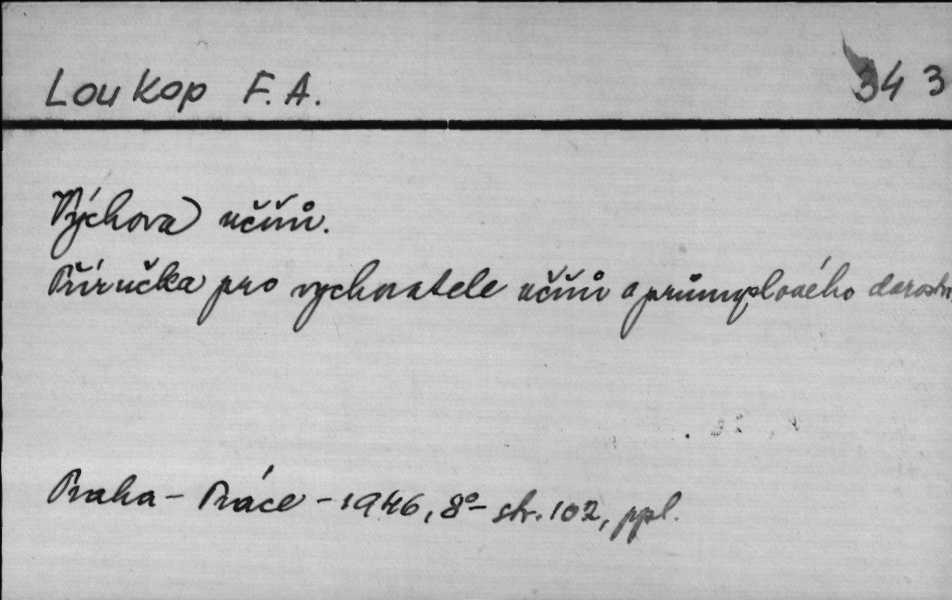 Loukop F. A. 343
Výchova učňů.
Příručka pro vychovatele učňů a průmyslového dorostu
Praha – Práce – 1946, 8° – str. 102, ppl.